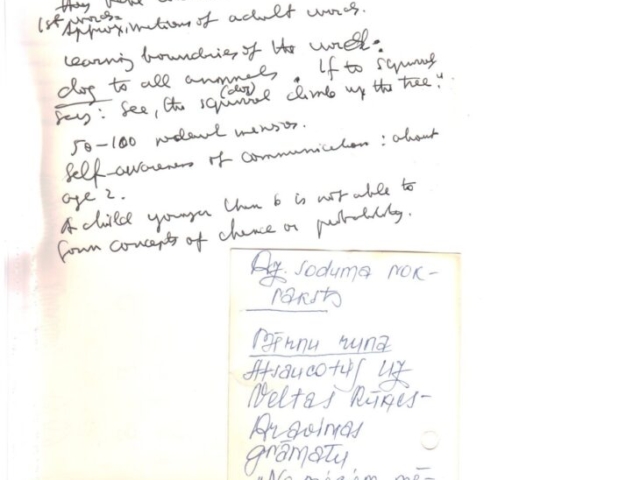 they have
1st words.
Approximations of adult words.
Learning boundries of the word:
dog to all animals. If to squirrel
(dog)
says: See, the squirrel climb up the tree."
50-100
Self-awareness of communication: about
age 2.
A child younger than 6 is not able to
form concepts of chance or probability.
Ag. Soduma nok-
raksts
Bērnu runa
Atsaucoties uz
Veltas Rūķes-
Draviņas
grāmatu
"No